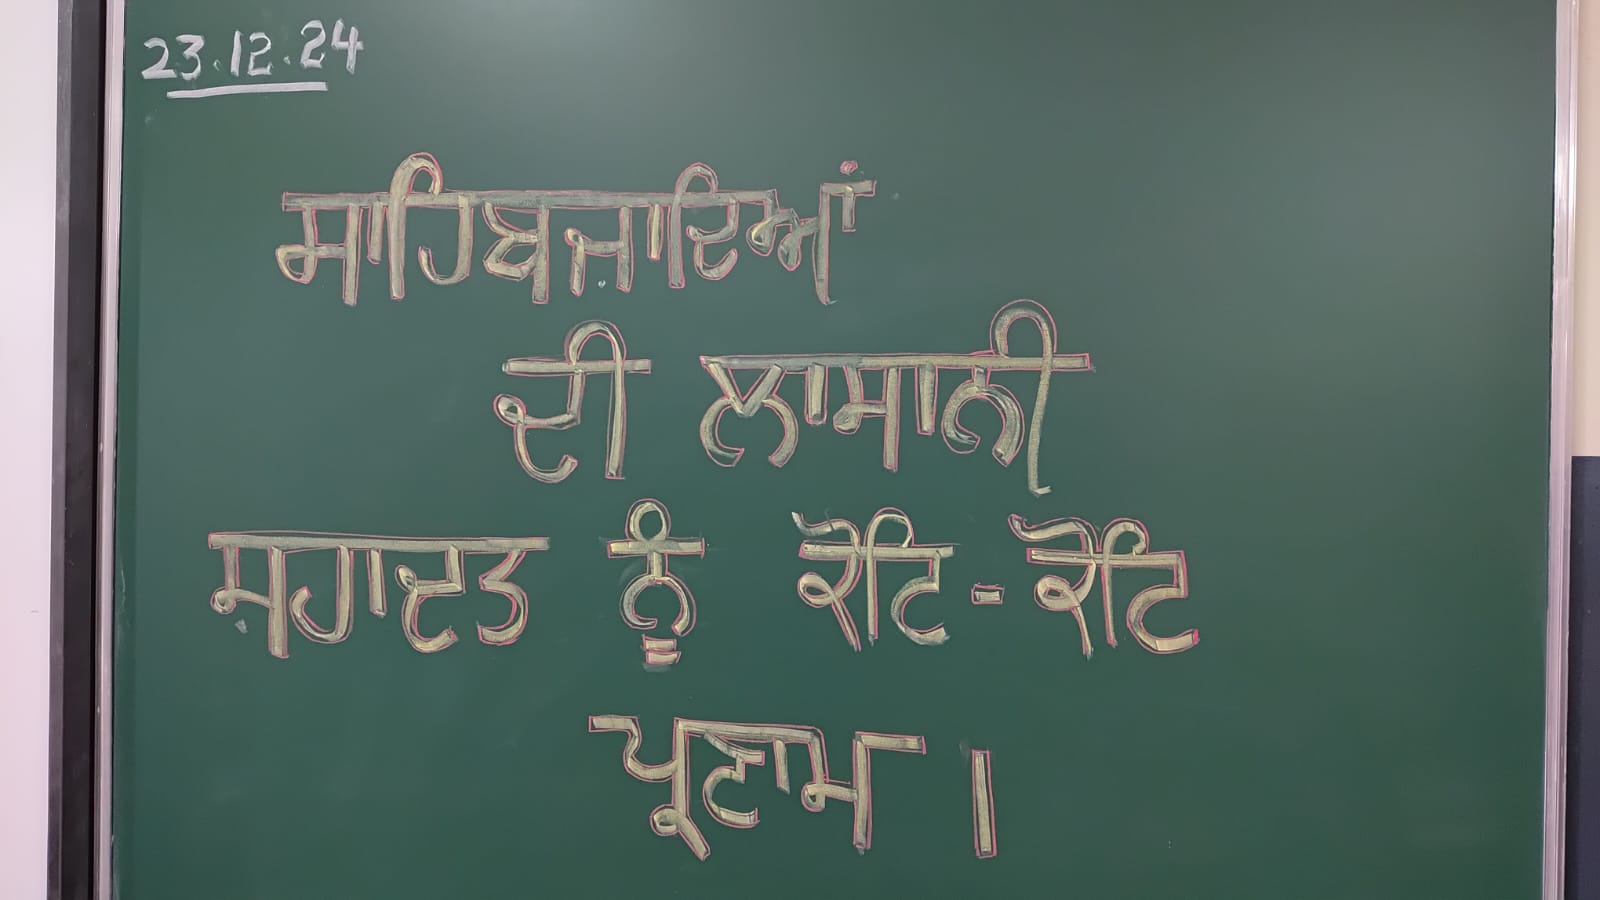 23.12.24
ਸਾਹਿਬਜ਼ਾਦਿਆਂ
ਦੀ ਲਾਸਾਨੀ
ਸ਼ਹਾਦਤ ਨੂੰ ਕੋਟਿ-ਕੋਟਿ
ਪ੍ਰਣਾਮ ।